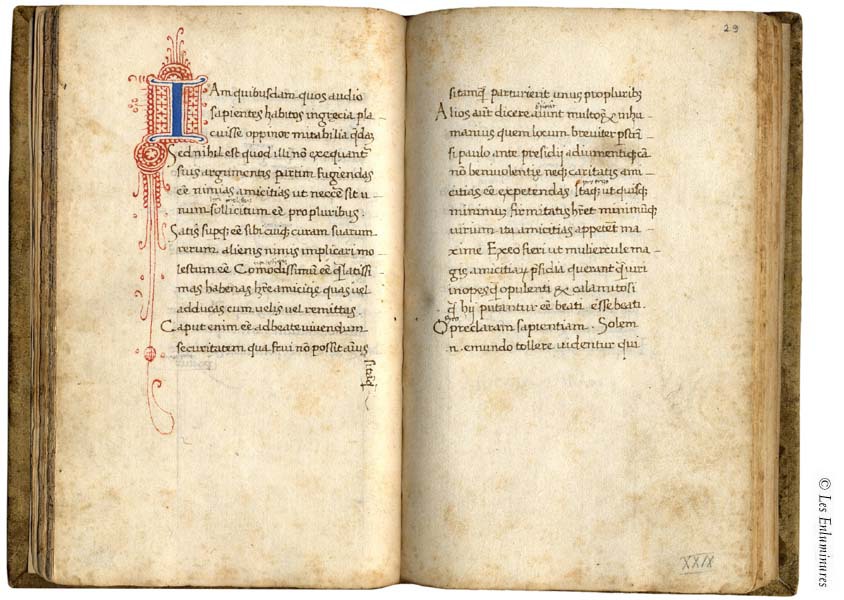 IAm quibusdam quos audio
sapientes habitos ingrecia pla
cuisse oppinor mirabilia q̃dã
Sed nihil est quod illi nõ exequant᷑
suis argumentis partim fugiendas
eẽ nimias amicitias ut neccẽ sit u
num sollicitum eẽ pro pluribus.
Satis supq; eẽ sibi cuiq; curam suarum
rerum. alienis nimis implicari mo
lestum eẽ Comodissimũ eẽ q̃ latissi
mas habenas hr̃e amicitie quas vel
adducas cum velis vel remittas.
Caput enim eẽ ad beate vivendum
securitatem qua frui nõ possit aĩus
si tãq̃
29
si tamq̃ parturierit unus pro pluribꝫ
Alios aũt dicere aiunt multoq; & inhu
manius quem locum breviter pstrĩ
si paulo ante presidij adiumentiq; cã
nõ benivolentie neq; caritatis ami
citias eẽ expetendas Itaq; ut quisq;
minimum firmitatis hr̃et minimũq;
virium ita amicitias appetẽt ma
xime Ex eo fieri ut muliercule ma
gis amicitiaꝝ psidia querant q̃ viri
inopes q̃ opulenti & calamitosi
q̃ hij putantur eẽ beati esse beati.
O preclaram sapientiam. Solem
n. e mundo tollere videntur qui
XXIX
© Les Enluminures